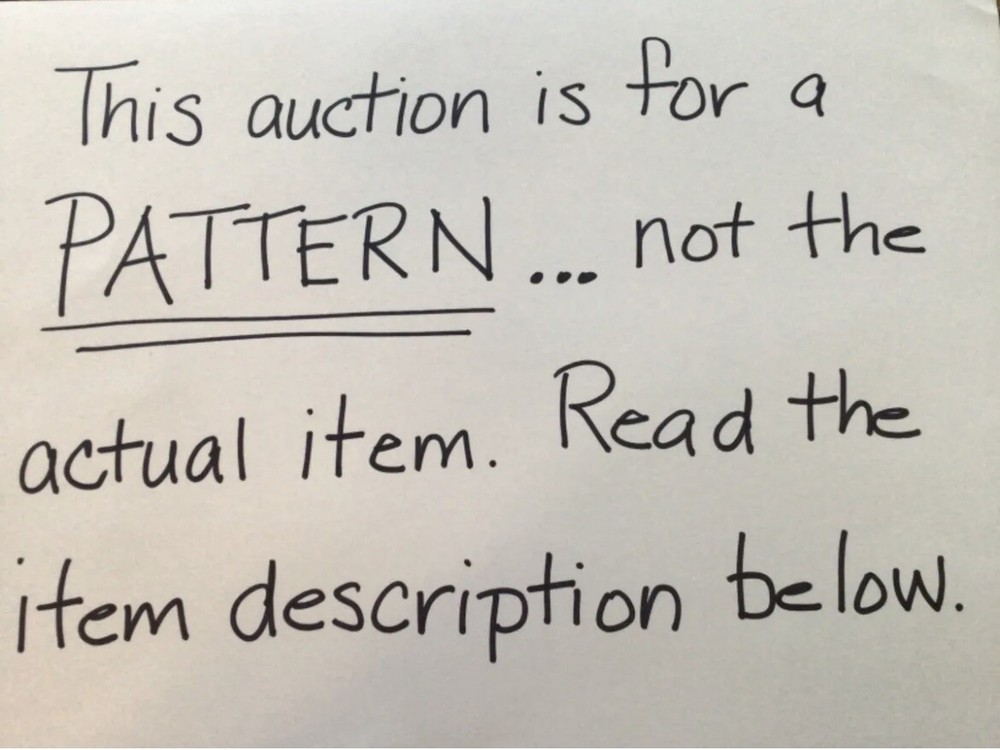 This auction is for a
PATTERN... not the
actual item. Read the
item description below.